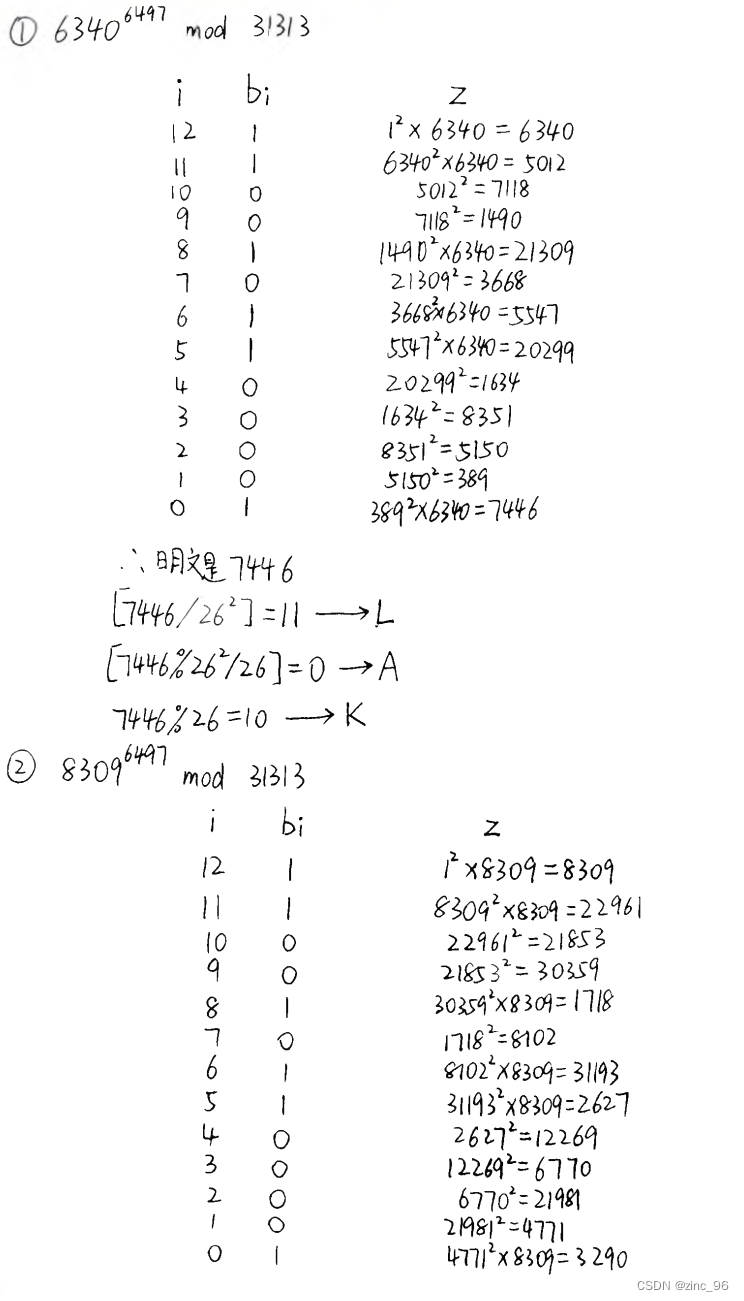 ① 6340^6497 mod 31313
i bi z
12 1 1²×6340=6340
11 1 6340²×6340=5012
10 0 5012²=7118
9 0 7118²=1490
8 1 1490²×6340=21309
7 0 21309²=3668
6 1 3668²×6340=5547
5 1 5547²×6340=20299
4 0 20299²=1634
3 0 1634²=8351
2 0 8351²=5150
1 0 5150²=389
0 1 389²×6340=7446
∴明文是7446
[7446/26²]=11 → L
[7446%26²/26]=0 → A
7446%26=10 → K
② 8309^6497 mod 31313
i bi z
12 1 1²×8309=8309
11 1 8309²×8309=22961
10 0 22961²=21853
9 0 21853²=30359
8 1 30359²×8309=1718
7 0 1718²=8102
6 1 8102²×8309=31193
5 1 31193²×8309=2627
4 0 2627²=12269
3 0 12269²=6770
2 0 6770²=21981
1 0 21981²=4771
0 1 4771²×8309=3290
CSDN @zinc_96